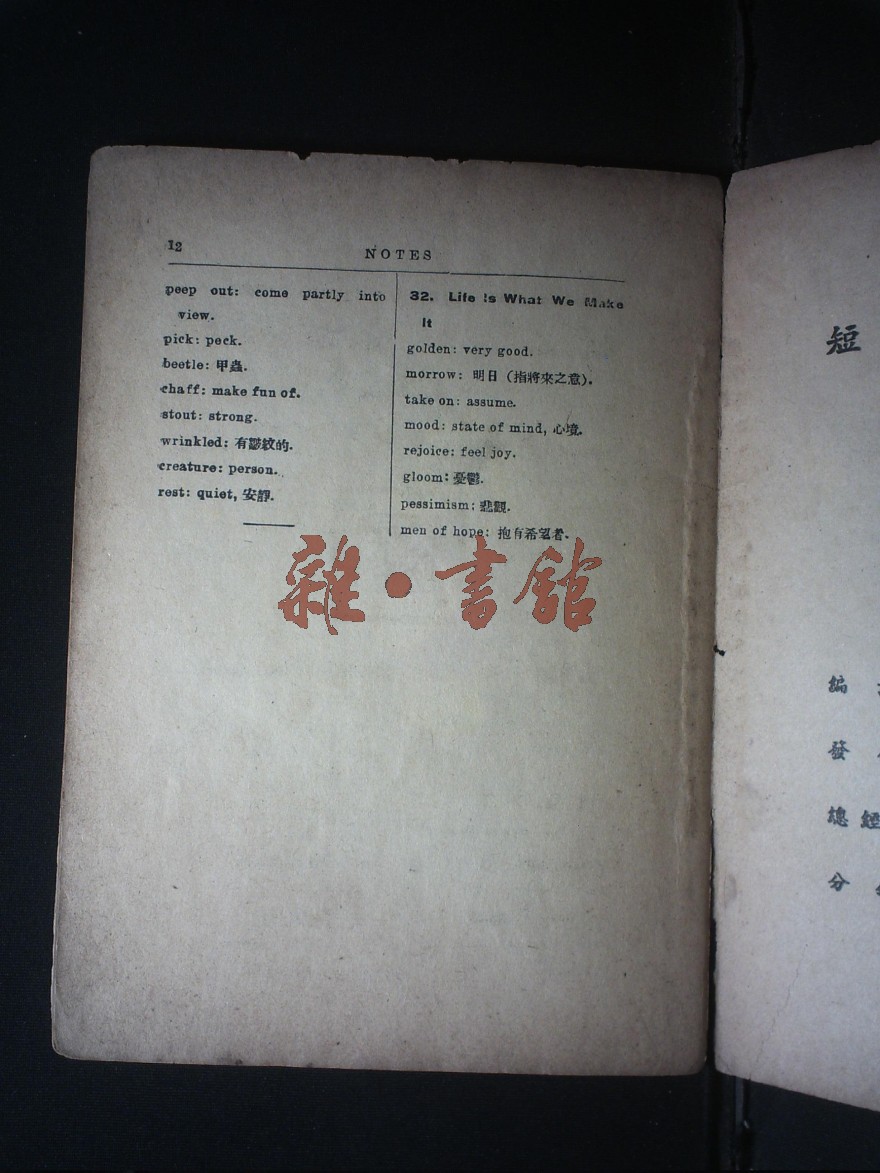 12
NOTES
peep out: come partly into
view.
pick: peck.
beetle: 甲蟲.
chaff: make fun of.
stout: strong.
wrinkled: 有皺紋的.
creature: person.
rest: quiet, 安靜.
32. Life Is What We Make
It
golden: very good.
morrow: 明日 (指將來之意).
take on: assume.
mood: state of mind, 心境.
rejoice: feel joy.
gloom: 憂鬱.
pessimism: 悲觀.
men of hope: 抱有希望者.
雜·書館
短
編
發
總經
分